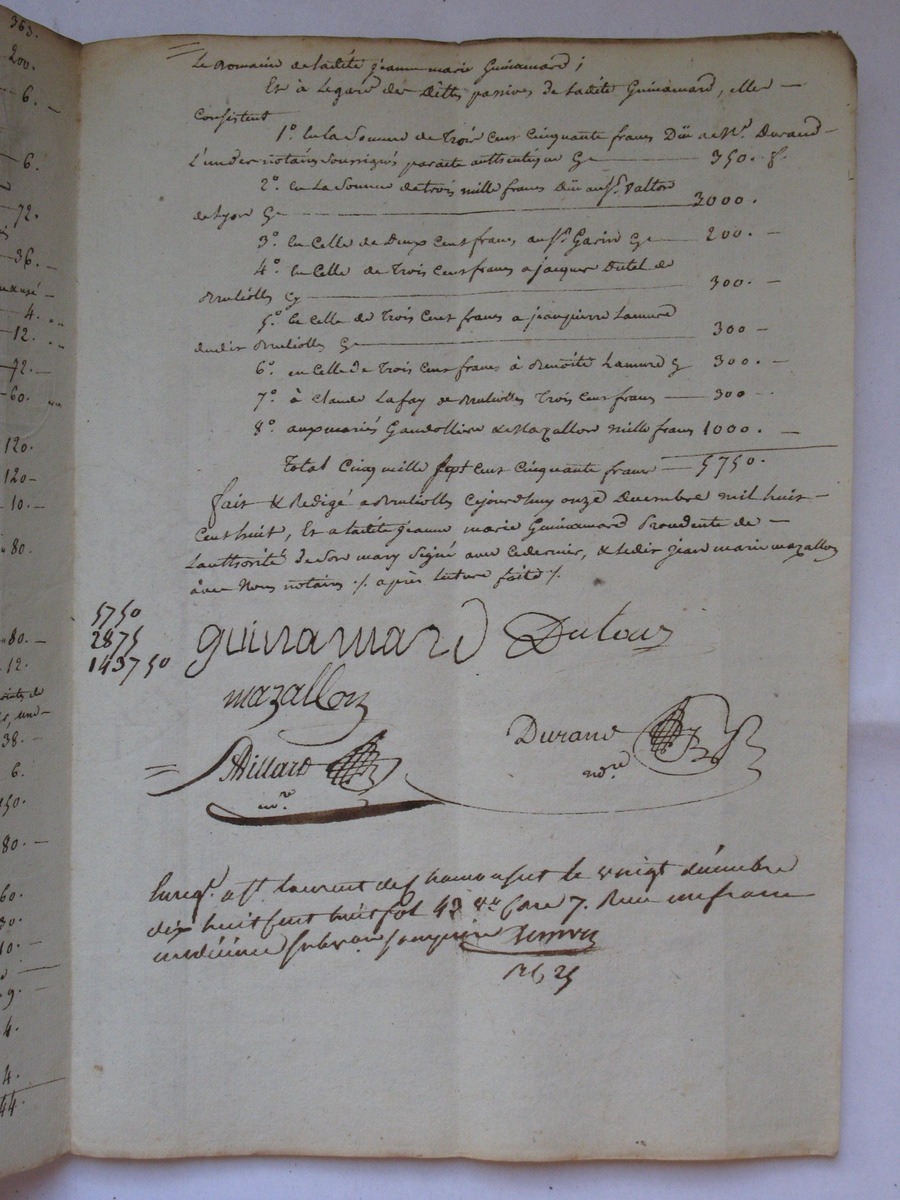 363.
200.
6. —
6.
72.
36. —
4.
12.
72. —
60.
120.
120 —
10. —
80.
80. —
12.
38. —
6.
150
80. —
60.
30.
10. —
9.
4.
4.
44.
Le domaine de ladite jeanne marie Guinamard ;
Et à Legard des Dettes passives de Ladite Guinamard, elles —
Consistent
1º. en la Somme de Trois Cent Cinquante francs Dûe a Mr. Durand —
L'un des notaires soussignés par acte authentique Cy — 350. f.
2º. en La Somme de trois mille francs Dûe au Sr. Valton
de Lyon Cy — 3000.
3º. en Celle de Deux Cent francs au Sr. Garin Cy — 200. —
4º. en Celle de Trois Cent francs a jacques Dutel de
Brulliolles Cy — 300. —
5º. en Celle de Trois Cent francs a jean pierre Lamure
dudit Brulliolles Cy — 300 —
6º. en Celle de Trois Cent francs à Benoite Lamure Cy 300. —
7º. à Claude Lafay de Brulliolles Trois Cent francs — 300 —
8º. aux mariés Gaudolliere & Mazallon mille francs 1000. —
Total Cinq mille Sept Cent Cinquante francs — 5750.
fait & Redigé a Brulliolles Cejourdhuy onze Decembre mil huit —
Cent huit, Et a ladite jeanne marie Guinamard Procedente de —
L'authorité de Son mary Signé avec Cedernier, & ledit jean marie mazallon
avec Nous notaires ./. après lecture faite ./.
5750
2875
1437 50
guinamard Dutour
mazallon
Durand
nore.
Billard
nre.
Enreg. a St. Laurent de Chamousset le vingt décembre
dix huit cent huit fol 43 vo. Case 7. Recu un franc